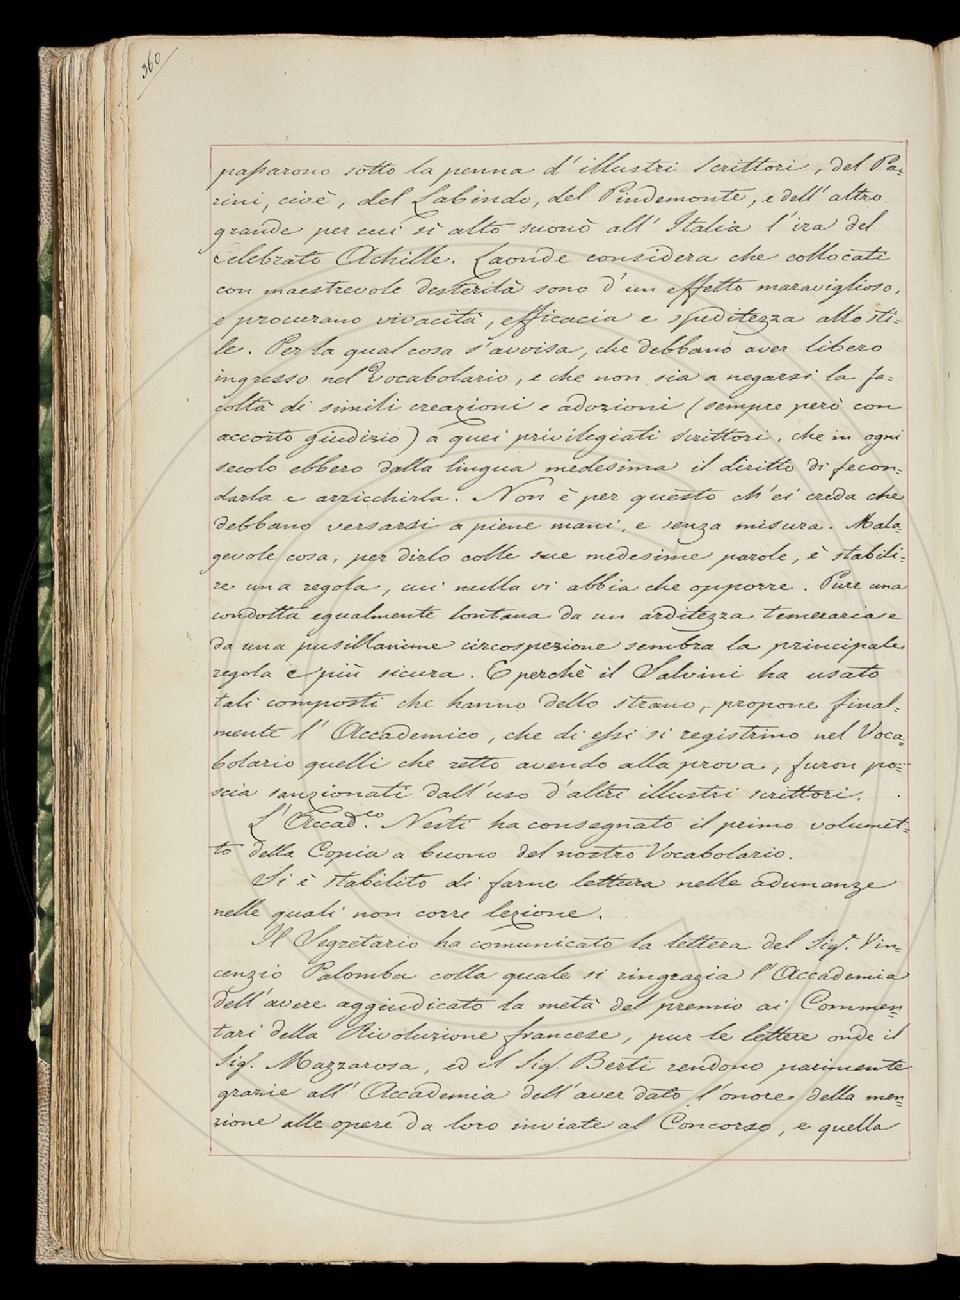 360
passarono sotto la penna d'illustri scrittori, del Pa-
rini, cioè, del Labindo, del Pindemonte, e dell'altro
grande per cui sì alto suonò all'Italia l'ira del
celebrato Achille. Laonde considera che collocati
con maestrevole desterità sono d'un effetto maraviglioso,
e procurano vivacità, efficacia e speditezza allo sti-
le. Per la qual cosa s'avvisa, che debbano aver libero
ingresso nel Vocabolario, e che non sia a negarsi la fa-
coltà di simili creazioni e adozioni (sempre però con
accorto giudizio) a quei privilegiati scrittori, che in ogni
secolo ebbero dalla lingua medesima il diritto di fecon-
darla e arricchirla. Non è per questo ch'ei creda che
debbano versarsi a piene mani, e senza misura. Mala-
gevole cosa, per dirlo colle sue medesime parole, è stabili-
re una regola, cui nulla vi abbia che opporre. Pure una
condotta egualmente lontana da un arditezza temeraria e
da una pusillanime circospezione sembra la principale
regola e più sicura. E perchè il Salvini ha usato
tali composti che hanno dello strano, propone final-
mente l'Accademico, che di essi si registrino nel Voca-
bolario quelli che retto avendo alla prova, furon po-
scia sanzionati dall'uso d'altri illustri scrittori.
L'Accad.co Nesti ha consegnato il primo volumet-
to della Copia a buono del nostro Vocabolario.
Si è stabilito di farne lettura nelle adunanze
nelle quali non corre lezione.
Il Segretario ha comunicato la lettera del Sig.r Vin-
cenzio Palomba colla quale si ringrazia l'Accademia
dell'avere aggiudicato la metà del premio ai Commen-
tari della Rivoluzione francese, pur le lettere onde il
Sig. Mazzarosa, ed il Sig. Berti rendono parimente
grazie all'Accademia dell'aver dato l'onore della men-
zione alle opere da loro inviate al Concorso, e quella